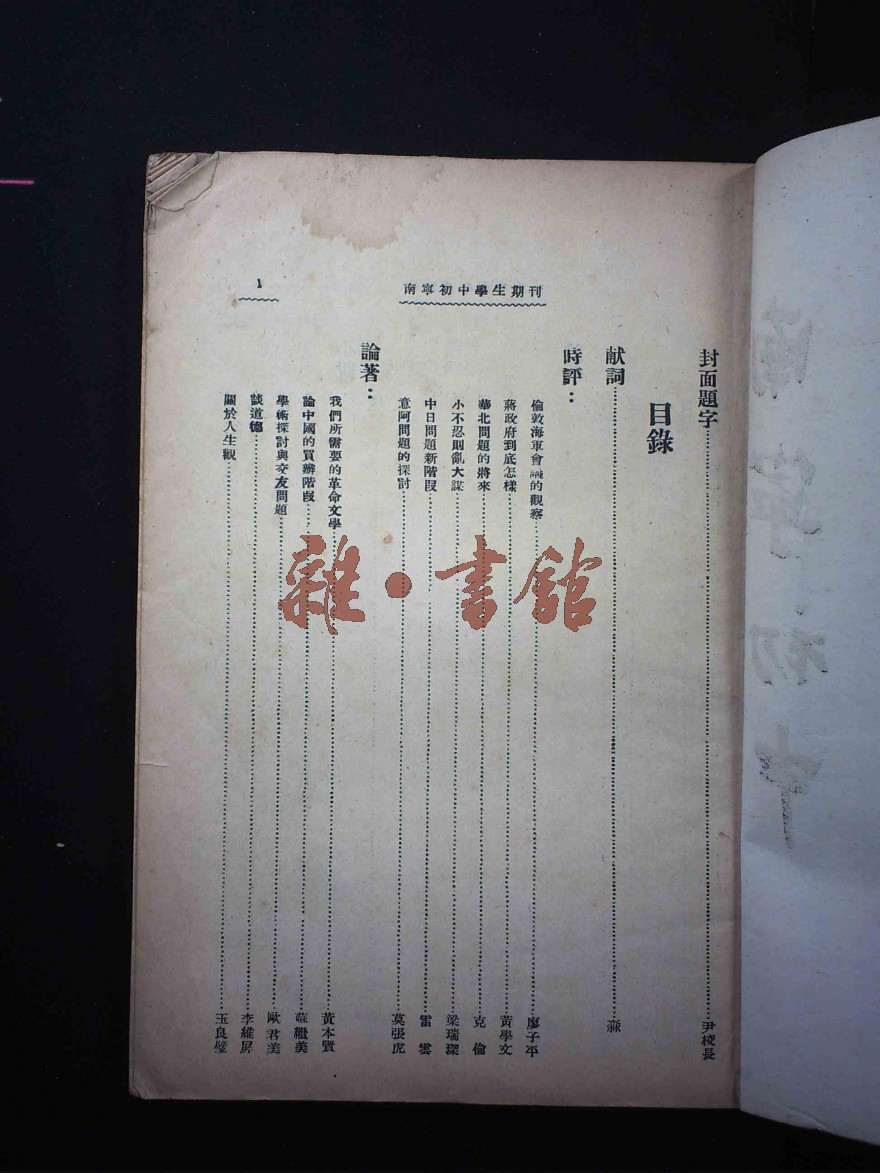 南寧初中學生期刊
1
封面題字……尹校長
目錄
献詞……
時評：
倫敦海軍會議的觀察……廖子平
蔣政府到底怎樣……黃學文
華北問題的將來……克倫
小不忍則亂大謀……梁瑞琛
中日問題新階段……雷雲
意阿問題的探討……莫張虎
論著：
我們所需要的革命文學……黃本賢
論中國的買辦階段……蘇繼美
學術探討與交友問題……歐君美
談道德……李維屏
關於人生觀……玉良璧
雜·書館